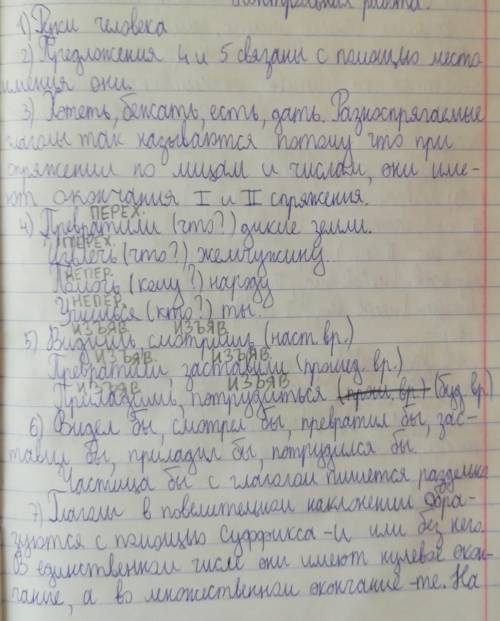 Контрольная работа.
1) Руки человека
2) Предложения 4 и 5 связаны с помощью место
имения они.
3) Хотеть, бежать, есть, дать. Разноспрягаемые
глаголы так называются потому что при
спряжении по лицам и числам, они име-
ют окончания I и II спряжения.
ПЕРЕХ.
4) Превратили (что?) дикие земли.
ПЕРЕХ.
Извлечь (что?) жемчужину.
НЕПЕР.
Помочь (кому?) народу
НЕПЕР.
Учишься (кто?) ты.
ИЗЪЯВ. ИЗЪЯВ.
5) Видишь, смотришь (наст. вр.)
ИЗЪЯВ. ИЗЪЯВ.
Превратили, заставили (прошед. вр.)
ИЗЪЯВ. ИЗЪЯВ.
Приладишь, потрудиться (прош. вр.) (буд. вр)
6) Видел бы, смотрел бы, превратил бы, зас-
тавил бы, приладил бы, потрудился бы.
Частица бы с глаголом пишется раздельно
7) Глаголы в повелительном наклонении обра-
зуются с помощью суффикса -и или без него.
В единственном числе они имеют нулевое окон-
чание, а во множественном окончание -те. На